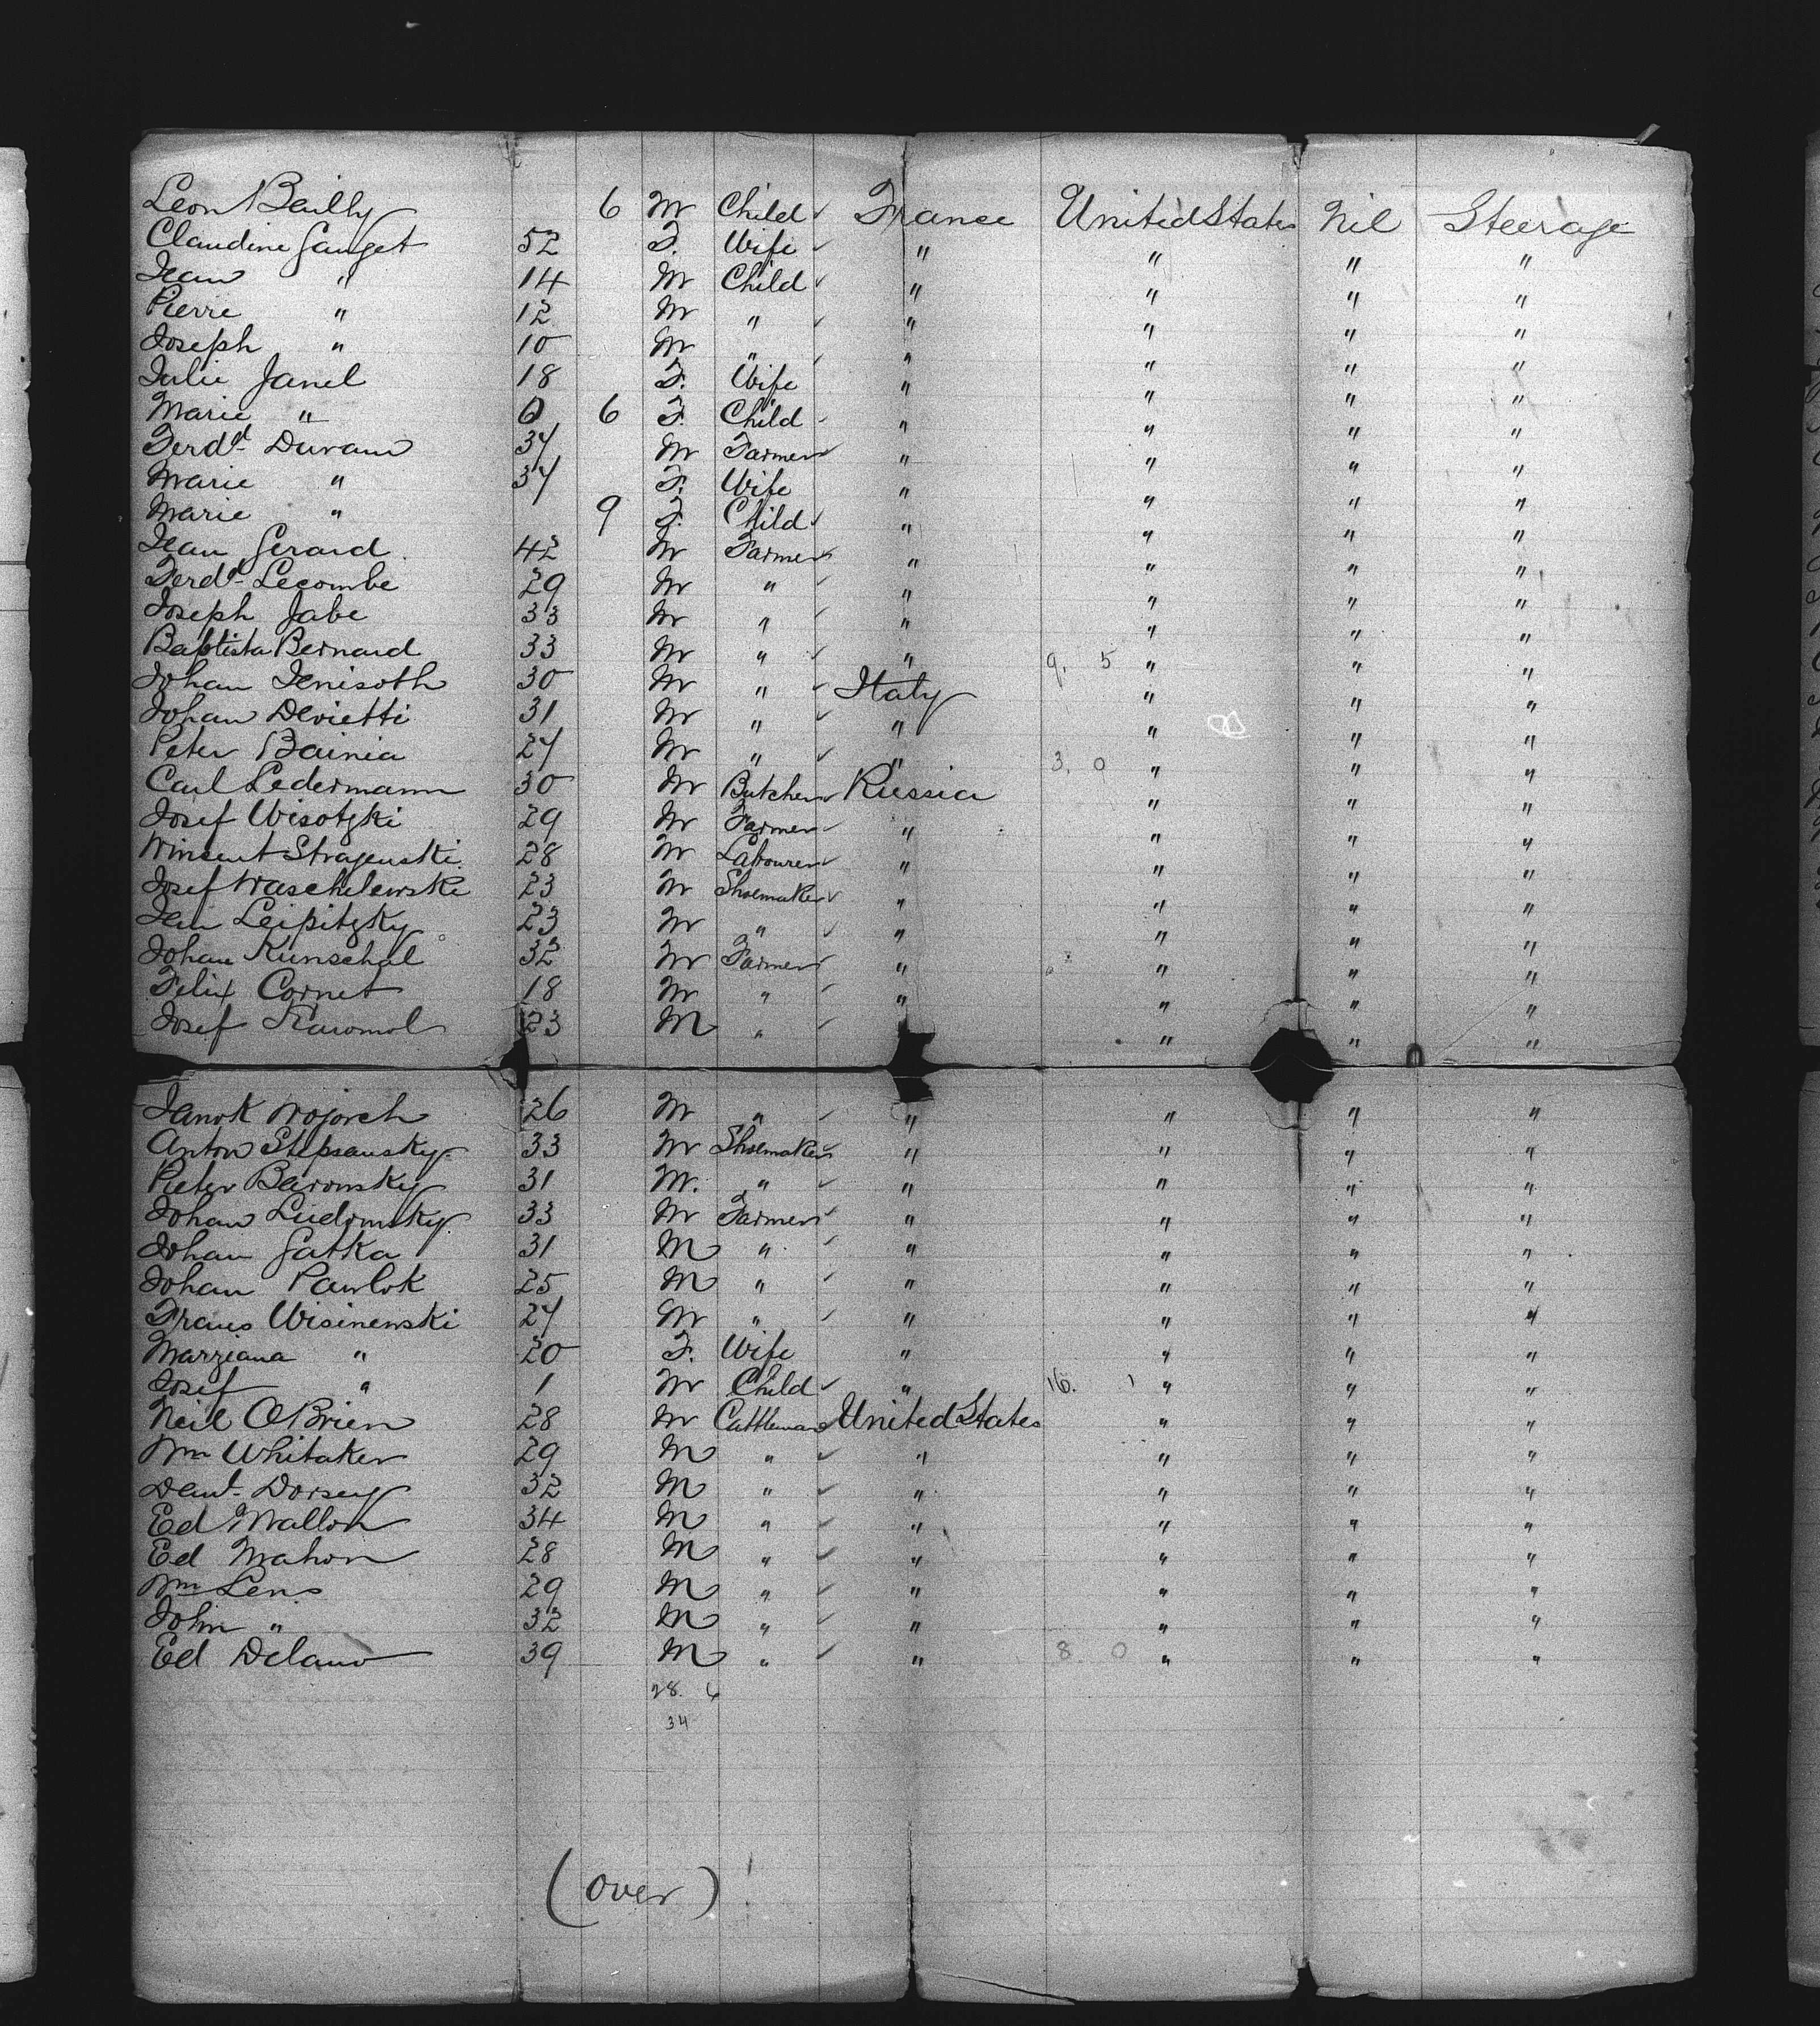 Leon Bailly 6 M Child France United States Nil Steerage
Claudine Gauget 52 F. Wife " " " "
Jean " 14 M Child " " " "
Pierre " 12 M " " " " "
Joseph " 10 M " " " " "
Julie Janel 18 F. Wife " " " "
Marie " 0 6 F. Child " " " "
Ferdd Duvam 34 M Farmer " " " "
Marie " 34 F. Wife " " " "
Marie " 9 F. Child " " " "
Jean Gerard 42 M Farmer " " " "
Ferdd Lecombe 29 M " " " " "
Joseph Jabe 33 M " " " " "
Baptista Bernard 33 M " " 9. 5 " " "
Johan Jenisoth 30 M " Italy " " "
Johan Devietti 31 M " " " " "
Peter Bainia 27 M " " 3. 0 " " "
Carl Ledermann 30 M Butcher Russia " " "
Josef Wisotzki 29 M Farmer " " " "
Winsent Strajenski 28 M Labourer " " " "
Josef Waschelewski 23 M Shoemaker " " " "
Jan Leipitzky 23 M " " " " "
Johan Kunschal 32 M Farmer " " " "
Felix Cornet 18 M " " " " "
Josef Karomol 23 M " " " "
Janok Wojorch 26 M " " " " "
Anton Stepsansky 33 M Shoemaker " " " "
Pieter Baromsky 31 M. " " " " "
Johan Ludomsky 33 M Farmer " " " "
Johan Gatka 31 M " " " " "
Johan Pawlok 25 M " " " " "
Frans Wisinewski 27 M " " " " "
Marziana " 20 F. Wife " " " "
Josef " 1 M Child " 16. 1 " " "
Neil OBrien 28 M Cattleman United States " " "
Wm Whitaker 29 M " " " " "
Danl. Dorsey 32 M " " " " "
Ed Mallon 34 M " " " " "
Ed Mahon 28 M " " " " "
Wm Lens 29 M " " " " "
John " 32 M " " " " "
Ed Delano 39 M " " 8. 0 " " "
28. 6
34
(over)